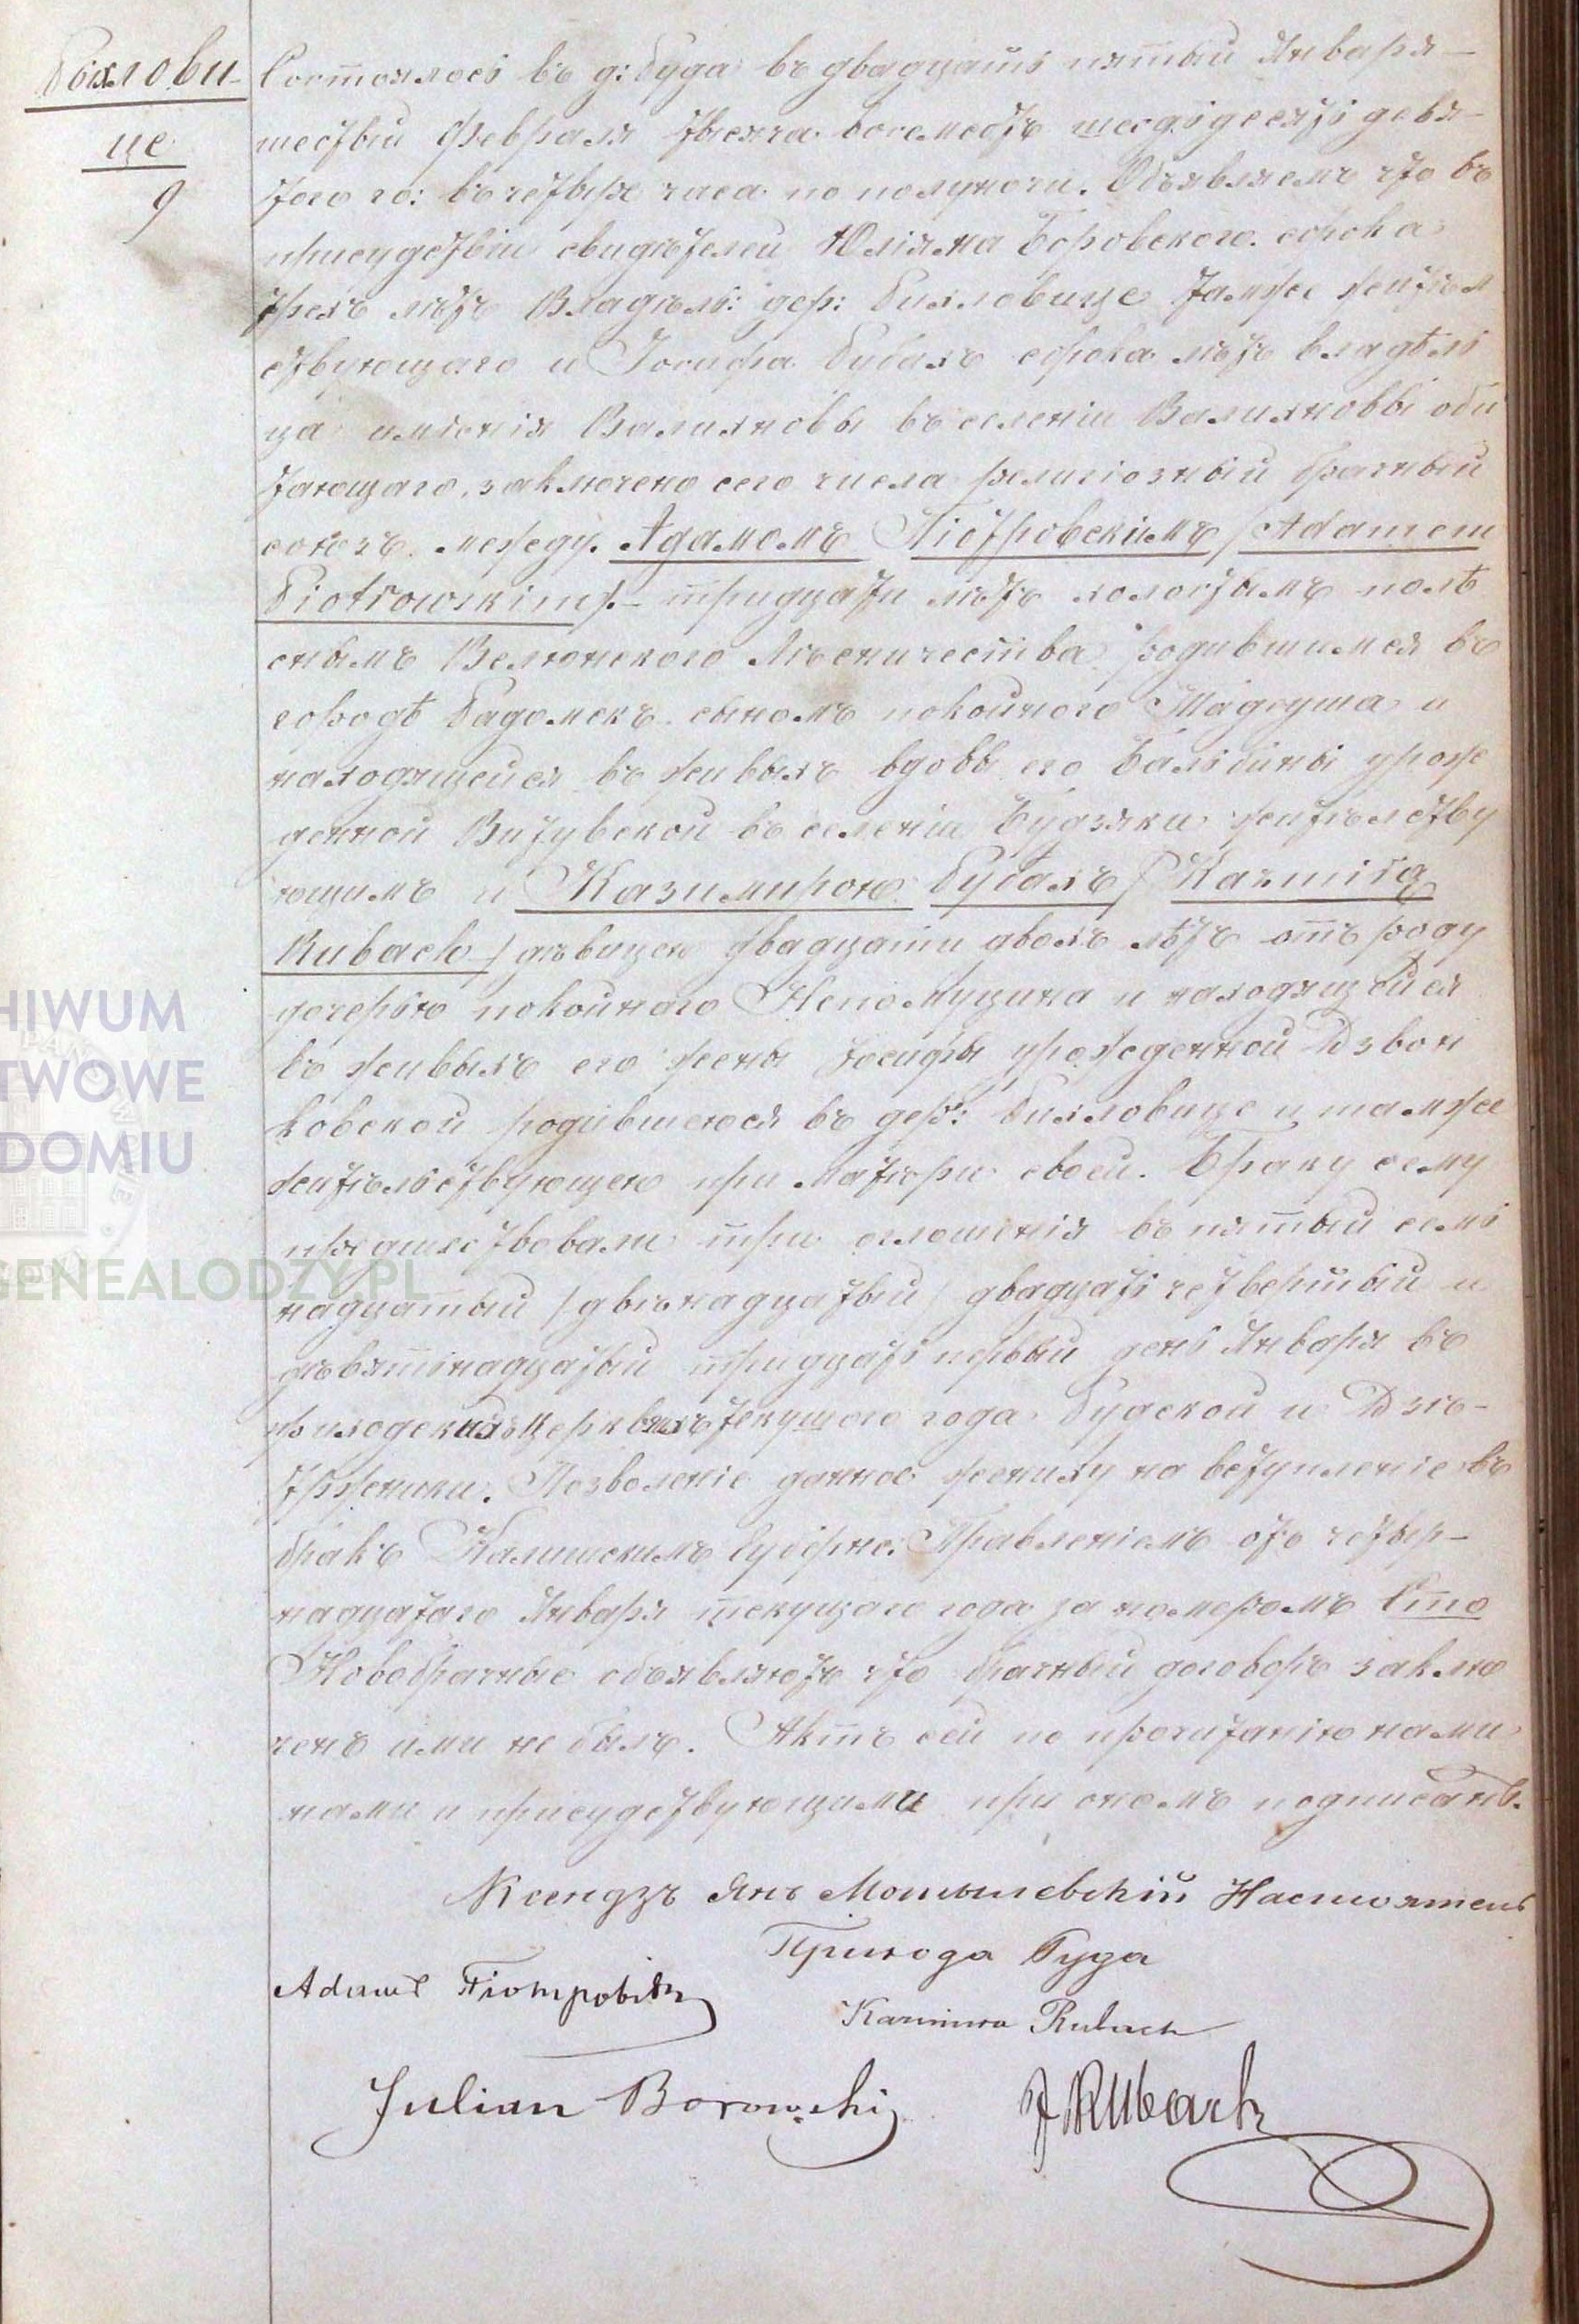 Бяхлови-
це
9
Состоялось въ д: Руда въ двадцать пятый Января —
шестый Февраля тысяча восемсотъ шестьдесятъ девя-
того го: въ четыре часа по полуночи. Объявляемъ что въ
присудствіи свидѣтелей Юліяна Боровского сорока
трехъ лѣтъ Владѣль: дер: Бяхловице тамже жител
ствующаго и Іосифа Рубахъ сорока лѣтъ владѣль
ца имѣнія Валихновы въ селеніи Валихновы оби
тающаго, заключено сего числа религіозный брачный
союзъ между Адамомъ Піотровскимъ /Adamem
Piotrowskim/ — тридцати лѣтъ холостымъ полѣ
снымъ Велюнского Лѣсничества родившимся въ
городѣ Радомскъ сыномъ покойного Тадеуша и
находящейся въ живыхъ вдовы его Бальбины урож
денной Витувской въ селеніи Будзяки жительству
ющимъ и Казимирою Рубахъ /Kazmirą
Rubach/ дѣвицею двадцати двохъ лѣтъ отъ роду
дочерью покойного Непомуцина и находящейся
въ живыхъ его жены Іосифы урожденной Дзвон
ковской родившеюся въ дер: Бяхловице и тамже
жительствующею при матери своей. Браку сему
предшествовали три оглошенія въ пятый семь
надцатый /двѣнадцатый/ двадцать четвертый и
девятнадцатый тридцать первый день Января въ
приходскихъ церквяхъ текущого года Рудской и Дзѣ-
тржники. Позволеніе данное жениху на вступленіе въ
бракъ Калишскимъ Губернс: Правленіемъ отъ четыр-
надцатаго Января текущаго года за номеромъ Сто
Новобрачные объявляютъ что брачный договоръ заклю
ченъ ими не былъ. Актъ сей по прочитанію нами
нами и присудствующими при ономъ подписанъ.
Ксендзъ Янъ Мотылевскій Настоятель
Прихода Руда
Adamъ Піотровскі
Kazimira Rubach
Julian Borowski
J Rubach
ARCHIWUM
PAŃSTWOWE
W RADOMIU
GENEALODZY.PL